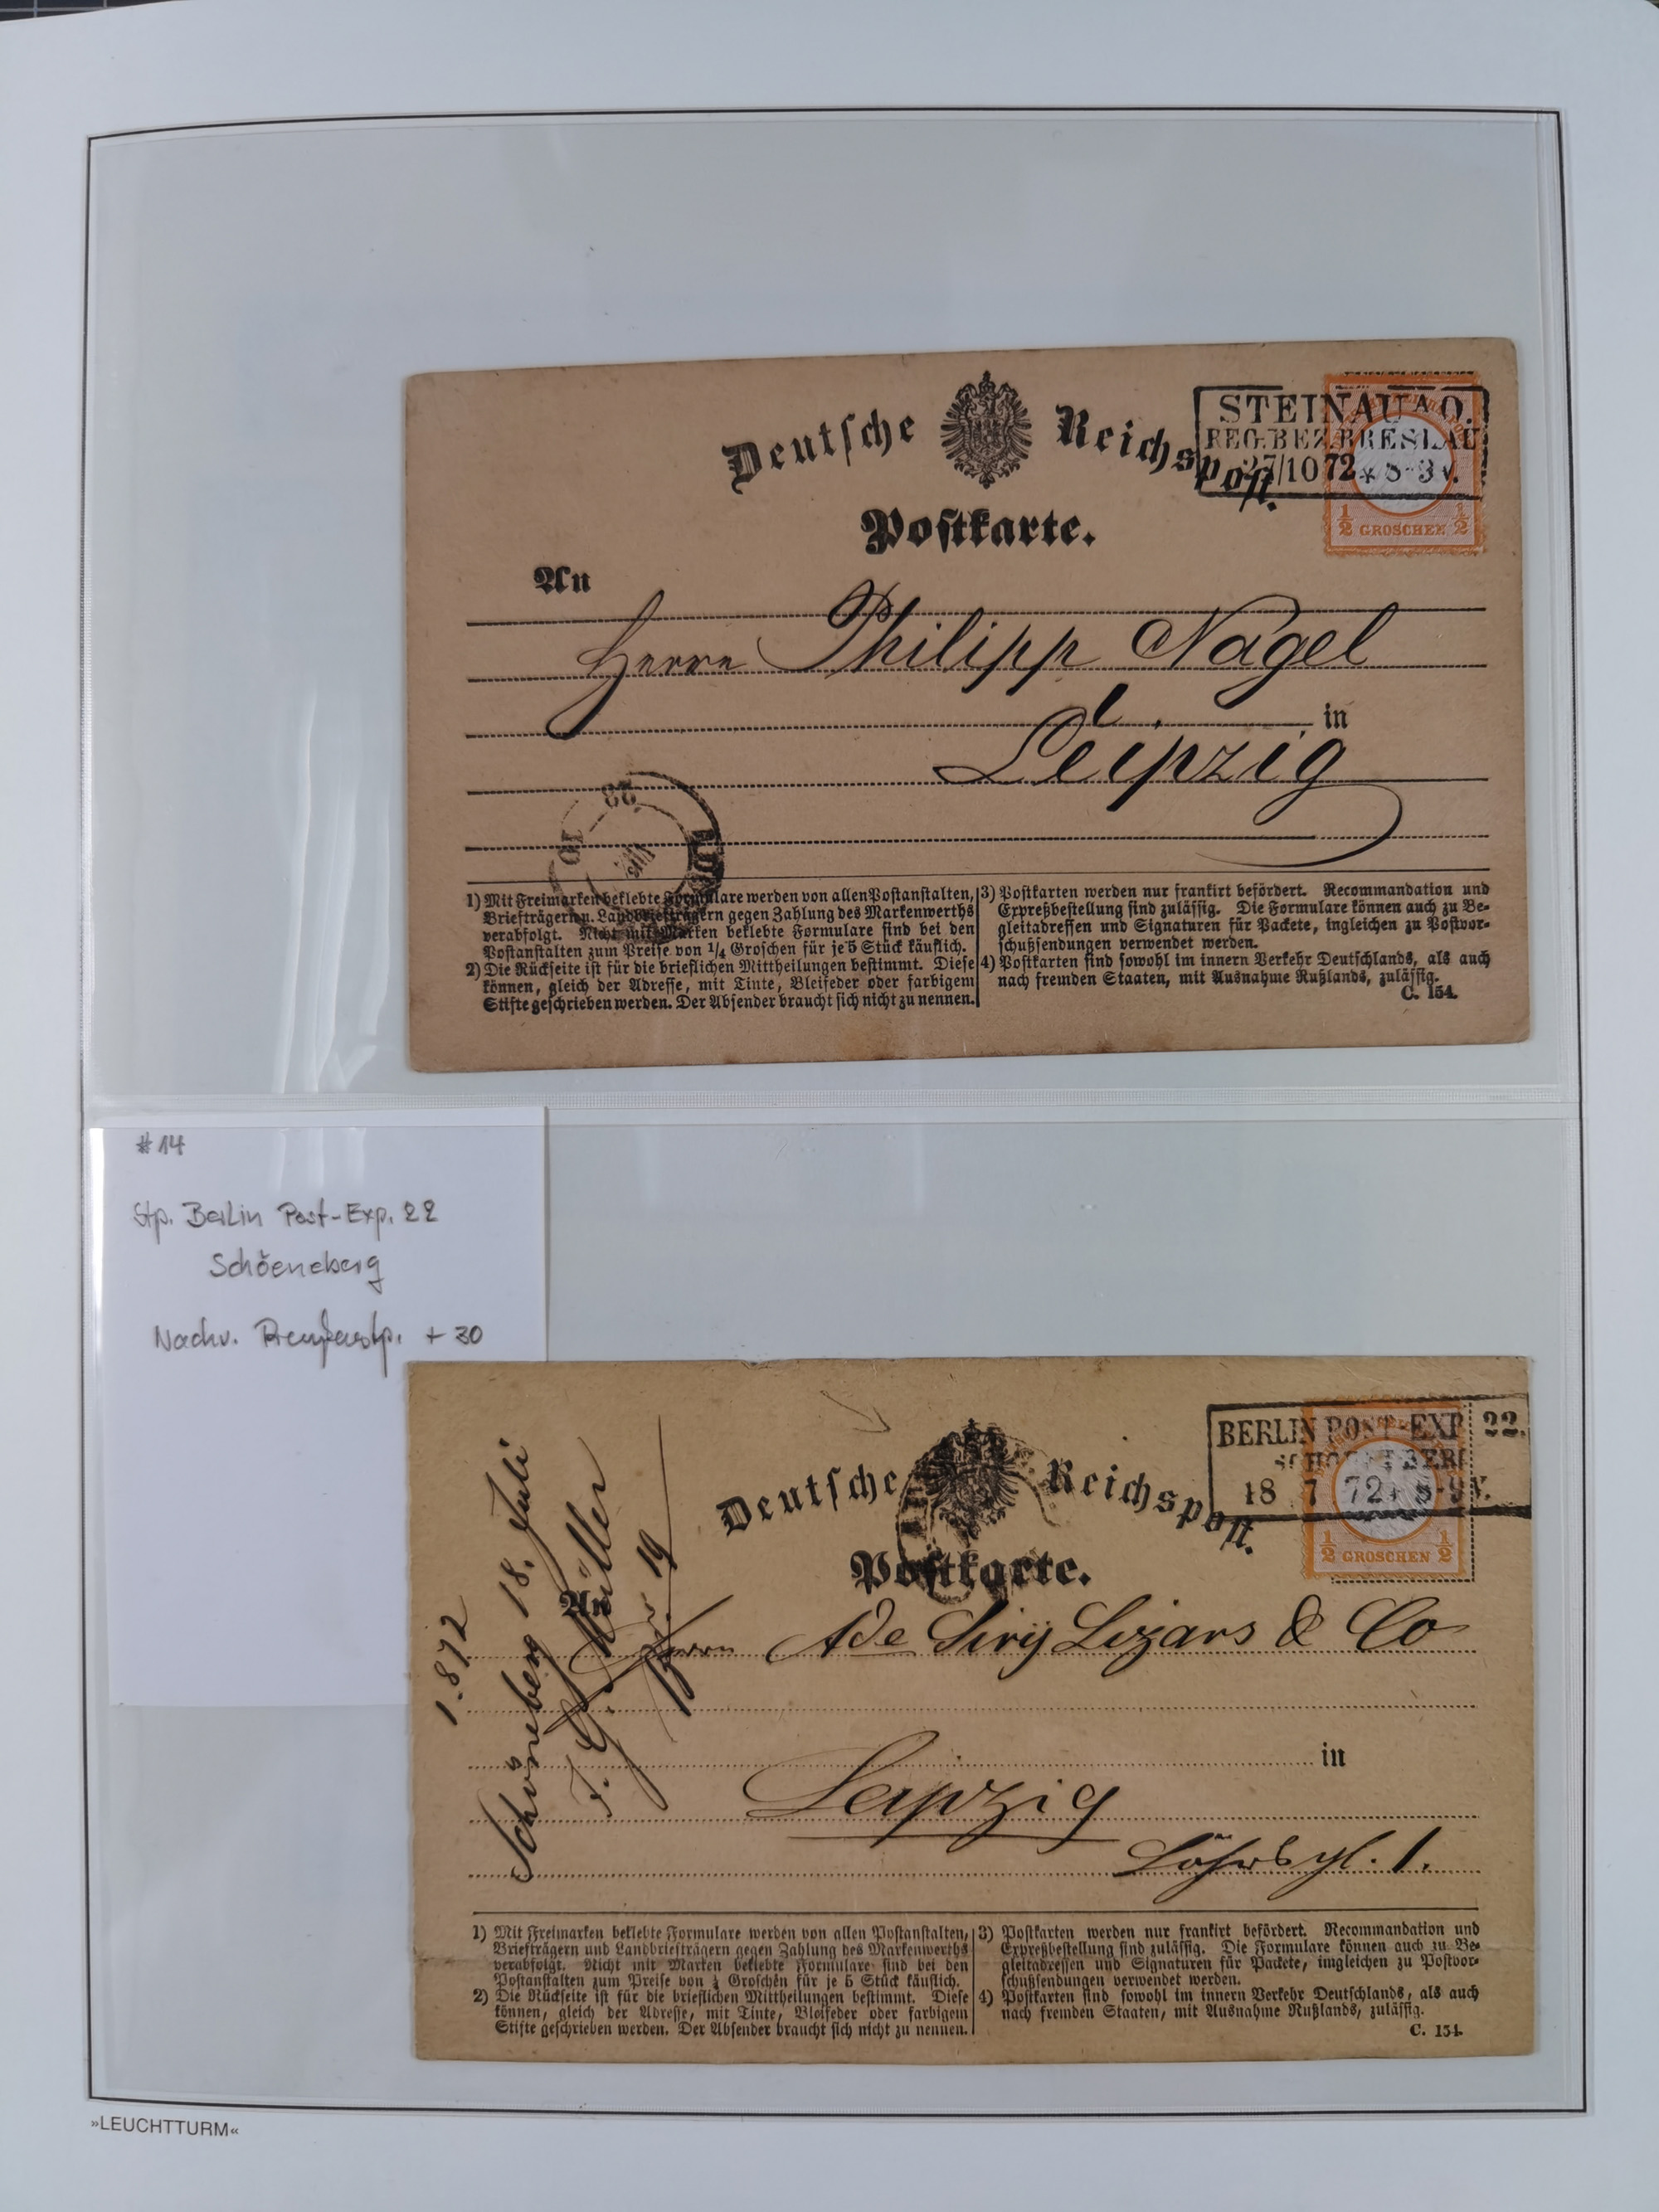 Deutsche Reichspost.
STEINAU A O.
REG. BEZ. BRESLAU
27/10 72 * 8-9 V.
½ GROSCHEN ½
Postkarte.
An
Herrn Philipp Nagel
in
Leipzig
28
10
1) Mit Freimarken beklebte Formulare werden von allen Postanstalten,
Briefträgern u. Landbriefträgern gegen Zahlung des Markenwerths
verabfolgt. Nicht mit Marken beklebte Formulare sind bei den
Postanstalten zum Preise von 1/4 Groschen für je 5 Stück käuflich.
2) Die Rückseite ist für die brieflichen Mittheilungen bestimmt. Diese
können, gleich der Adresse, mit Tinte, Bleifeder oder farbigem
Stifte geschrieben werden. Der Absender braucht sich nicht zu nennen.
3) Postkarten werden nur frankirt befördert. Recommandation und
Expreßbestellung sind zulässig. Die Formulare können auch zu Be-
gleitadressen und Signaturen für Packete, ingleichen zu Postvor-
schußsendungen verwendet werden.
4) Postkarten sind sowohl im innern Verkehr Deutschlands, als auch
nach fremden Staaten, mit Ausnahme Rußlands, zulässig.
C. 154.
#14
Stp. Berlin Post-Exp. 22
Schöeneberg
Nachv. Preußenstp. + 30
Deutsche Reichspost.
BERLIN POST-EXP 22.
18 7 72 8-9 V.
½ GROSCHEN ½
Postkarte.
An
Schöneberg 18. Juli
1.872
F. G. Müller
Herrn Ade Siry Lizars & Co
in
Leipzig
Löhrs pl. 1.
1) Mit Freimarken beklebte Formulare werden von allen Postanstalten,
Briefträgern und Landbriefträgern gegen Zahlung des Markenwerths
verabfolgt. Nicht mit Marken beklebte Formulare sind bei den
Postanstalten zum Preise von ¼ Groschen für je 5 Stück käuflich.
2) Die Rückseite ist für die brieflichen Mittheilungen bestimmt. Diese
können, gleich der Adresse, mit Tinte, Bleifeder oder farbigem
Stifte geschrieben werden. Der Absender braucht sich nicht zu nennen.
3) Postkarten werden nur frankirt befördert. Recommandation und
Expreßbestellung sind zulässig. Die Formulare können auch zu Be-
gleitadressen und Signaturen für Packete, imgleichen zu Postvor-
schußsendungen verwendet werden.
4) Postkarten sind sowohl im innern Verkehr Deutschlands, als auch
nach fremden Staaten, mit Ausnahme Rußlands, zulässig.
C. 154.
»LEUCHTTURM«